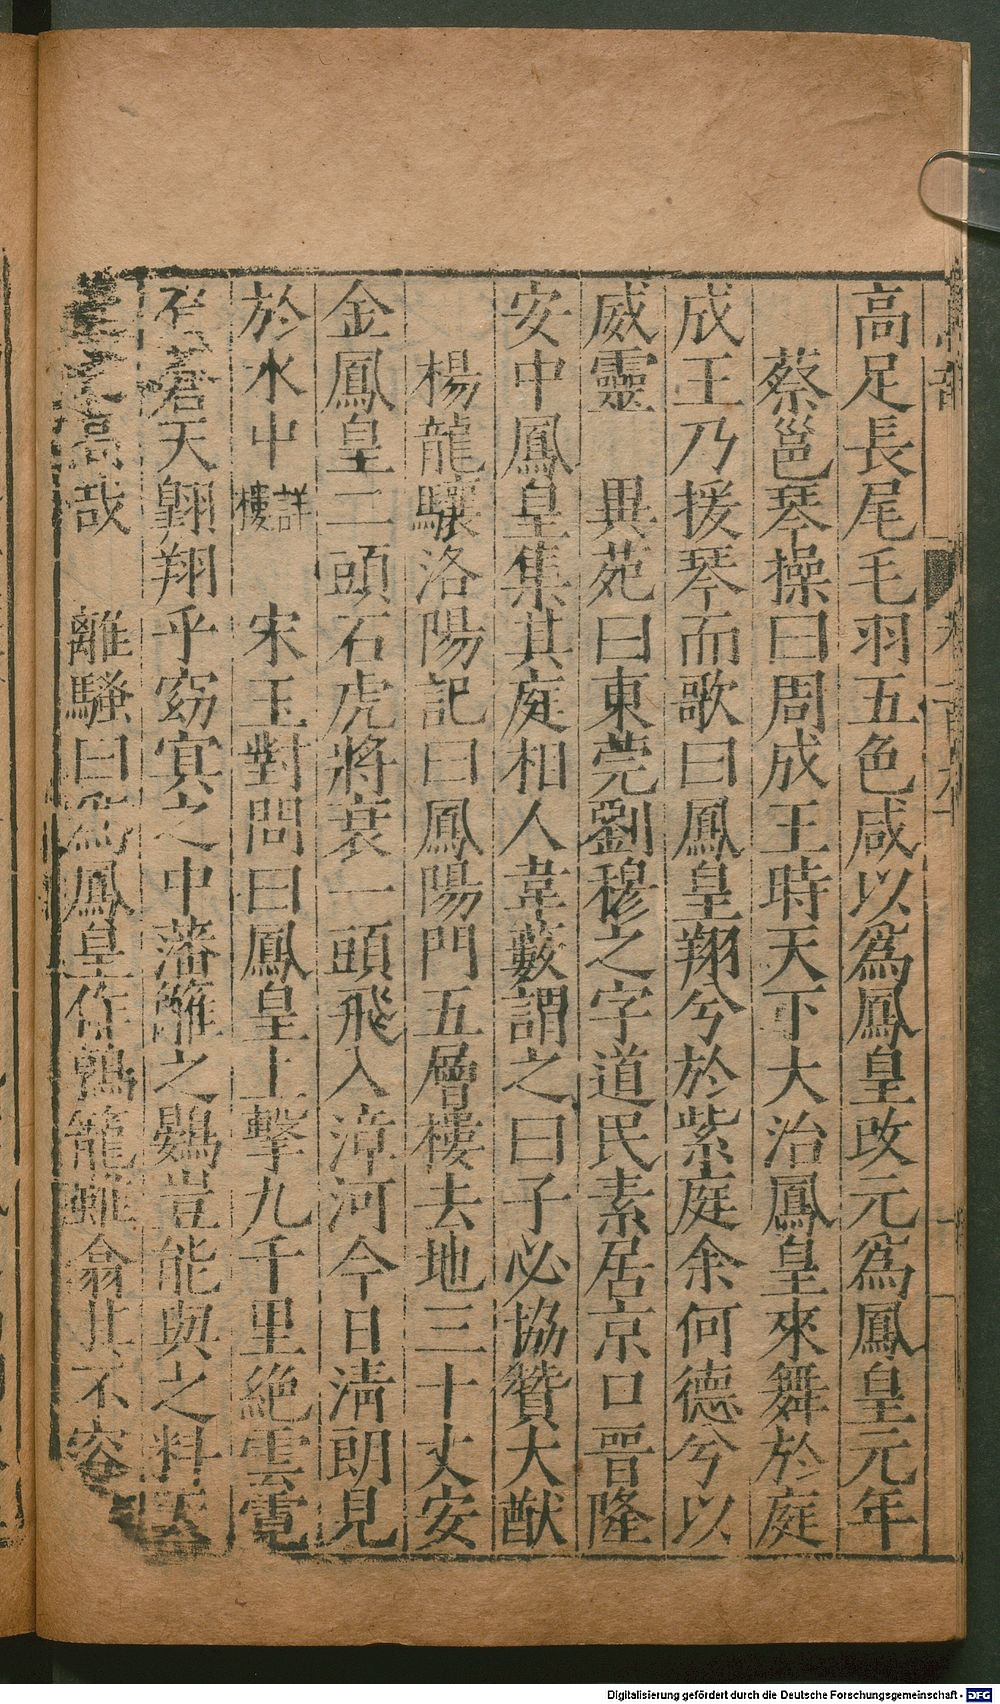 高足長尾毛羽五色咸以為鳳皇改元為鳳皇元年
蔡邕琴操曰周成王時天下大治鳳皇來舞於庭
成王乃援琴而歌曰鳳皇翔兮於紫庭余何德兮以
感靈 異苑曰東莞劉穆之字道民素居京口晉隆
安中鳳皇集其庭相人韋藪謂之曰子必協贊大猷
楊龍驤洛陽記曰鳳陽門五層樓去地三十丈安
金鳳皇二頭石虎將衰一頭飛入漳河今日清朗見
於水中詳樓 宋玉對問曰鳳皇上擊九千里絶雲霓
負蒼天翺翔乎窈冥之中藩籬之鷃豈能與之料天
地之高哉 離騷曰為鳳皇作鶉籠雖翕其不容
Digitalisierung gefördert durch die Deutsche Forschungsgemeinschaft - DFG